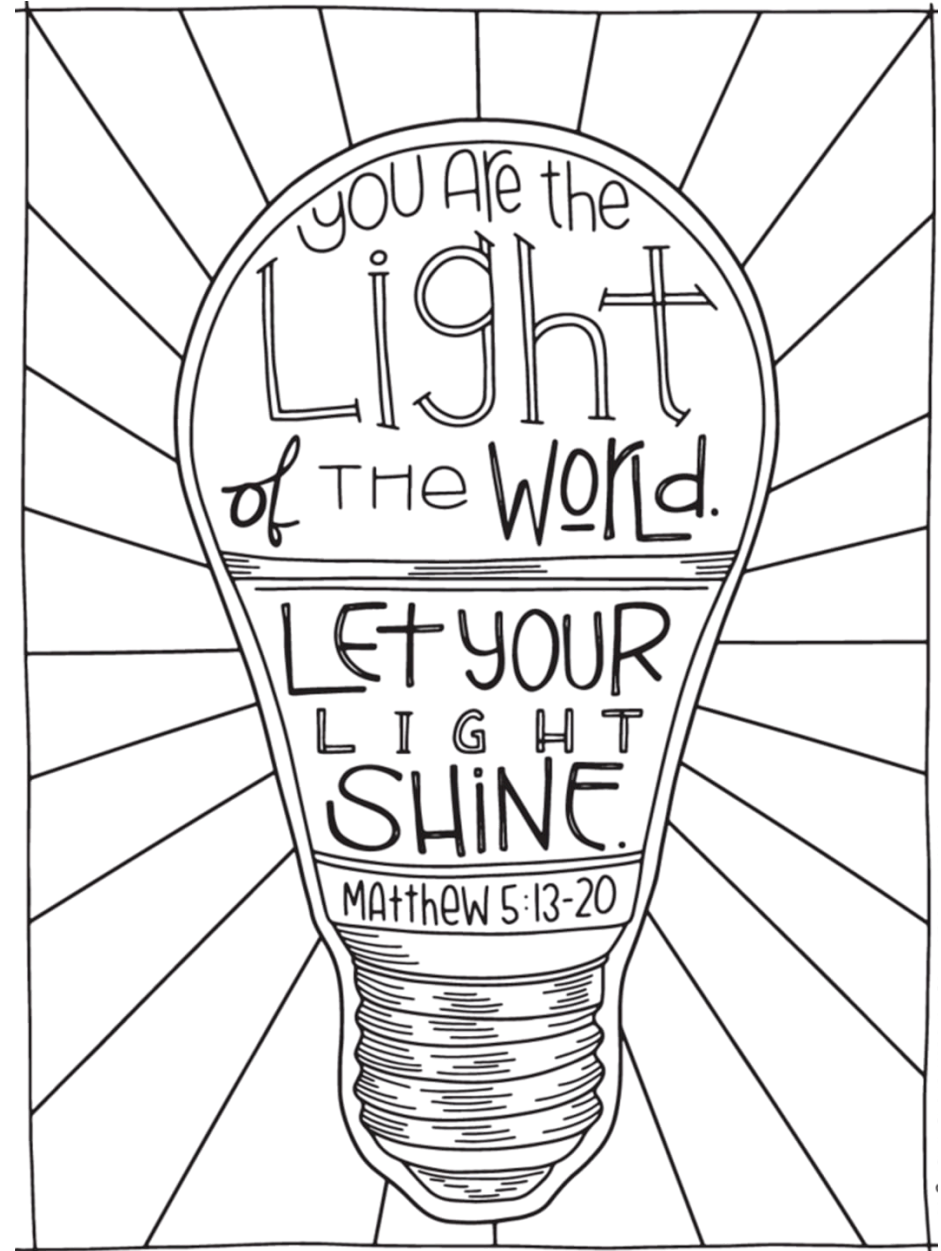 you Are the
Light
of THe World.
LEt YOUR
LIGHT
SHiNE.
MAttheW 5:13-20